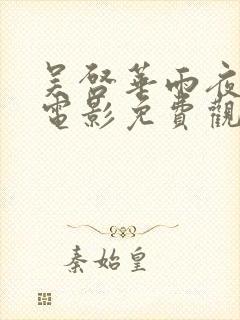 吴啓華雨夜
電影免費觀
秦始皇